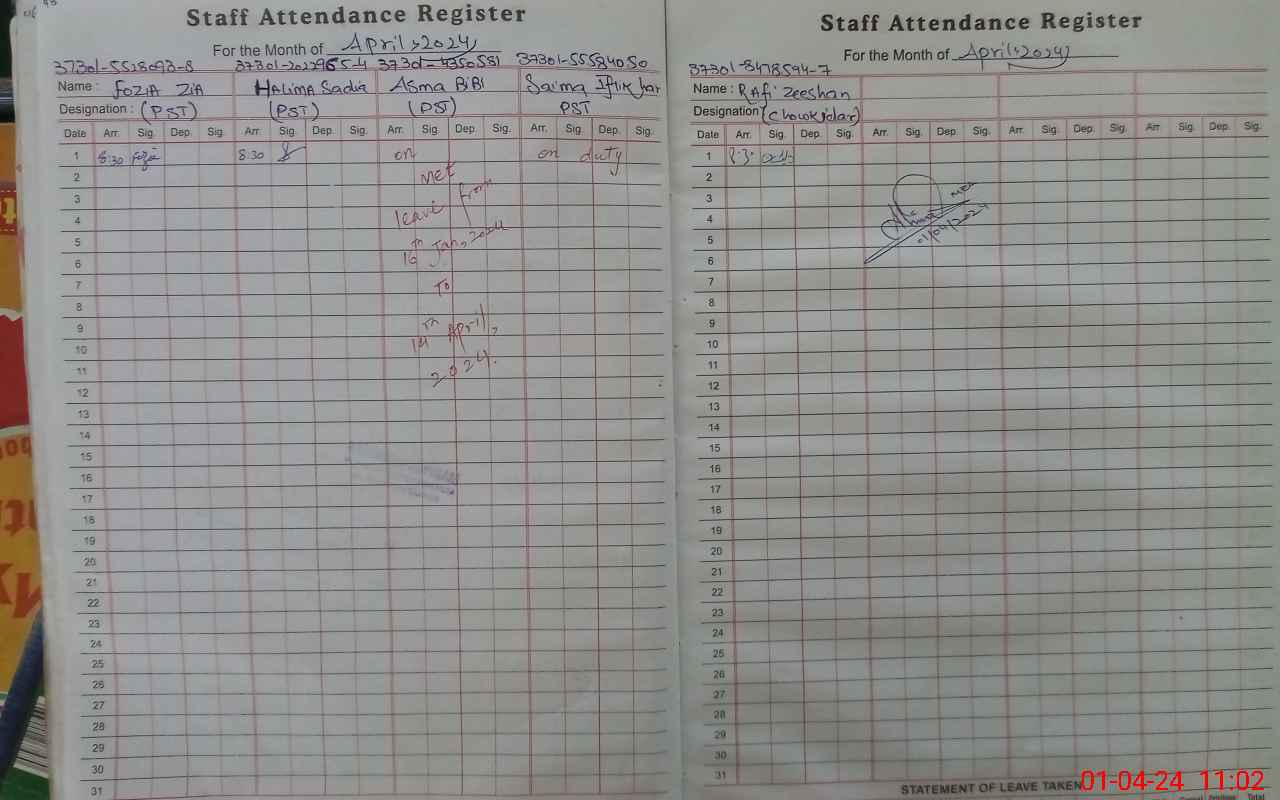 Staff Attendance Register
For the Month of April, 2024
37301-5528093-8 37301-2022965-4 37301-4350581 37301-5558405 0
Name: FOZIA ZIA HALIMA Sadia ASMA BiBi Saima Iftikhar
Designation: (PST) (PST) (PST) PST
Date Arr. Sig. Dep. Sig. Arr. Sig. Dep. Sig. Arr. Sig. Dep. Sig. Arr. Sig. Dep. Sig.
1 8:30 Fozia 8:30 on on duty
2 
3 leave from
4
5 16th Jan, 2024
6
7 To
8
9 14th April,
10
11 2024.
12
13
14
15
16
17
18
19
20
21
22
23
24
25
26
27
28
29
30
31
Staff Attendance Register
For the Month of April, 2024
37301-8478594-7
Name: RAfi Zeeshan
Designation (Chowkidar)
Date Arr. Sig. Dep. Sig. Arr. Sig. Dep. Sig. Arr. Sig. Dep. Sig. Arr. Sig. Dep. Sig.
1
2
3
4
5 01/04/2024
6
7
8
9
10
11
12
13
14
15
16
17
18
19
20
21
22
23
24
25
26
27
28
29
30
31
STATEMENT OF LEAVE TAKEN
01-04-24 11:02
Total